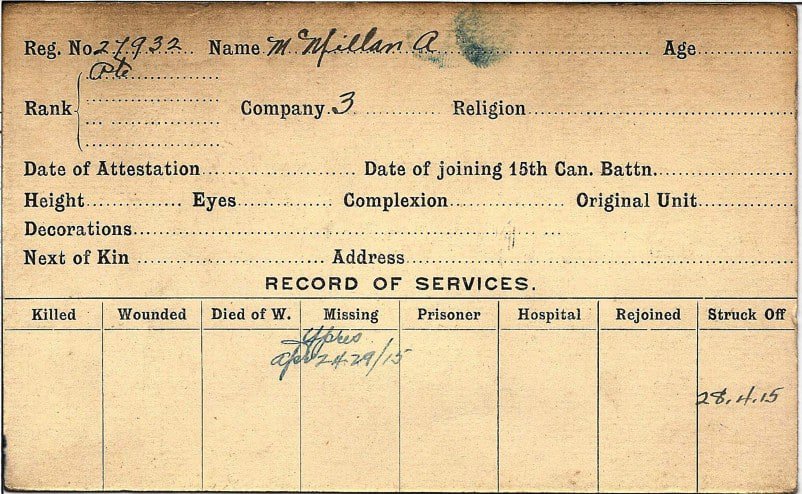 Reg. No. 27932 Name McMillan A Age
Pte
Rank Company 3 Religion
Date of Attestation Date of joining 15th Can. Battn.
Height Eyes Complexion Original Unit
Decorations
Next of Kin Address
RECORD OF SERVICES.
Killed Wounded Died of W. Missing Prisoner Hospital Rejoined Struck Off
Ypres
Apr 24-29/15
28.4.15